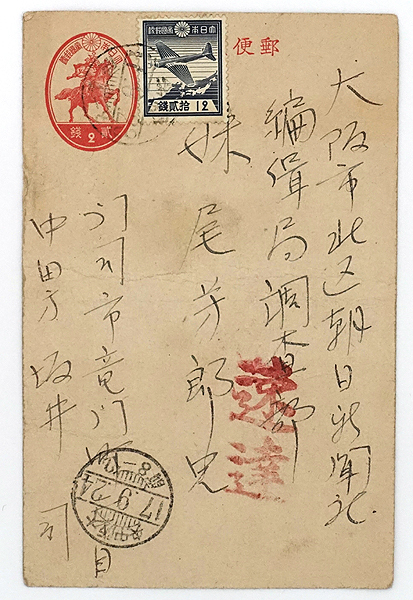 郵便
大日本帝國郵便
拾貳錢
12
貳錢
2
大阪市北区朝日新聞社
編輯局調査部
妹尾芳郎兄
速達
門司市竜門町
中田方 坂井 司
17.9.24